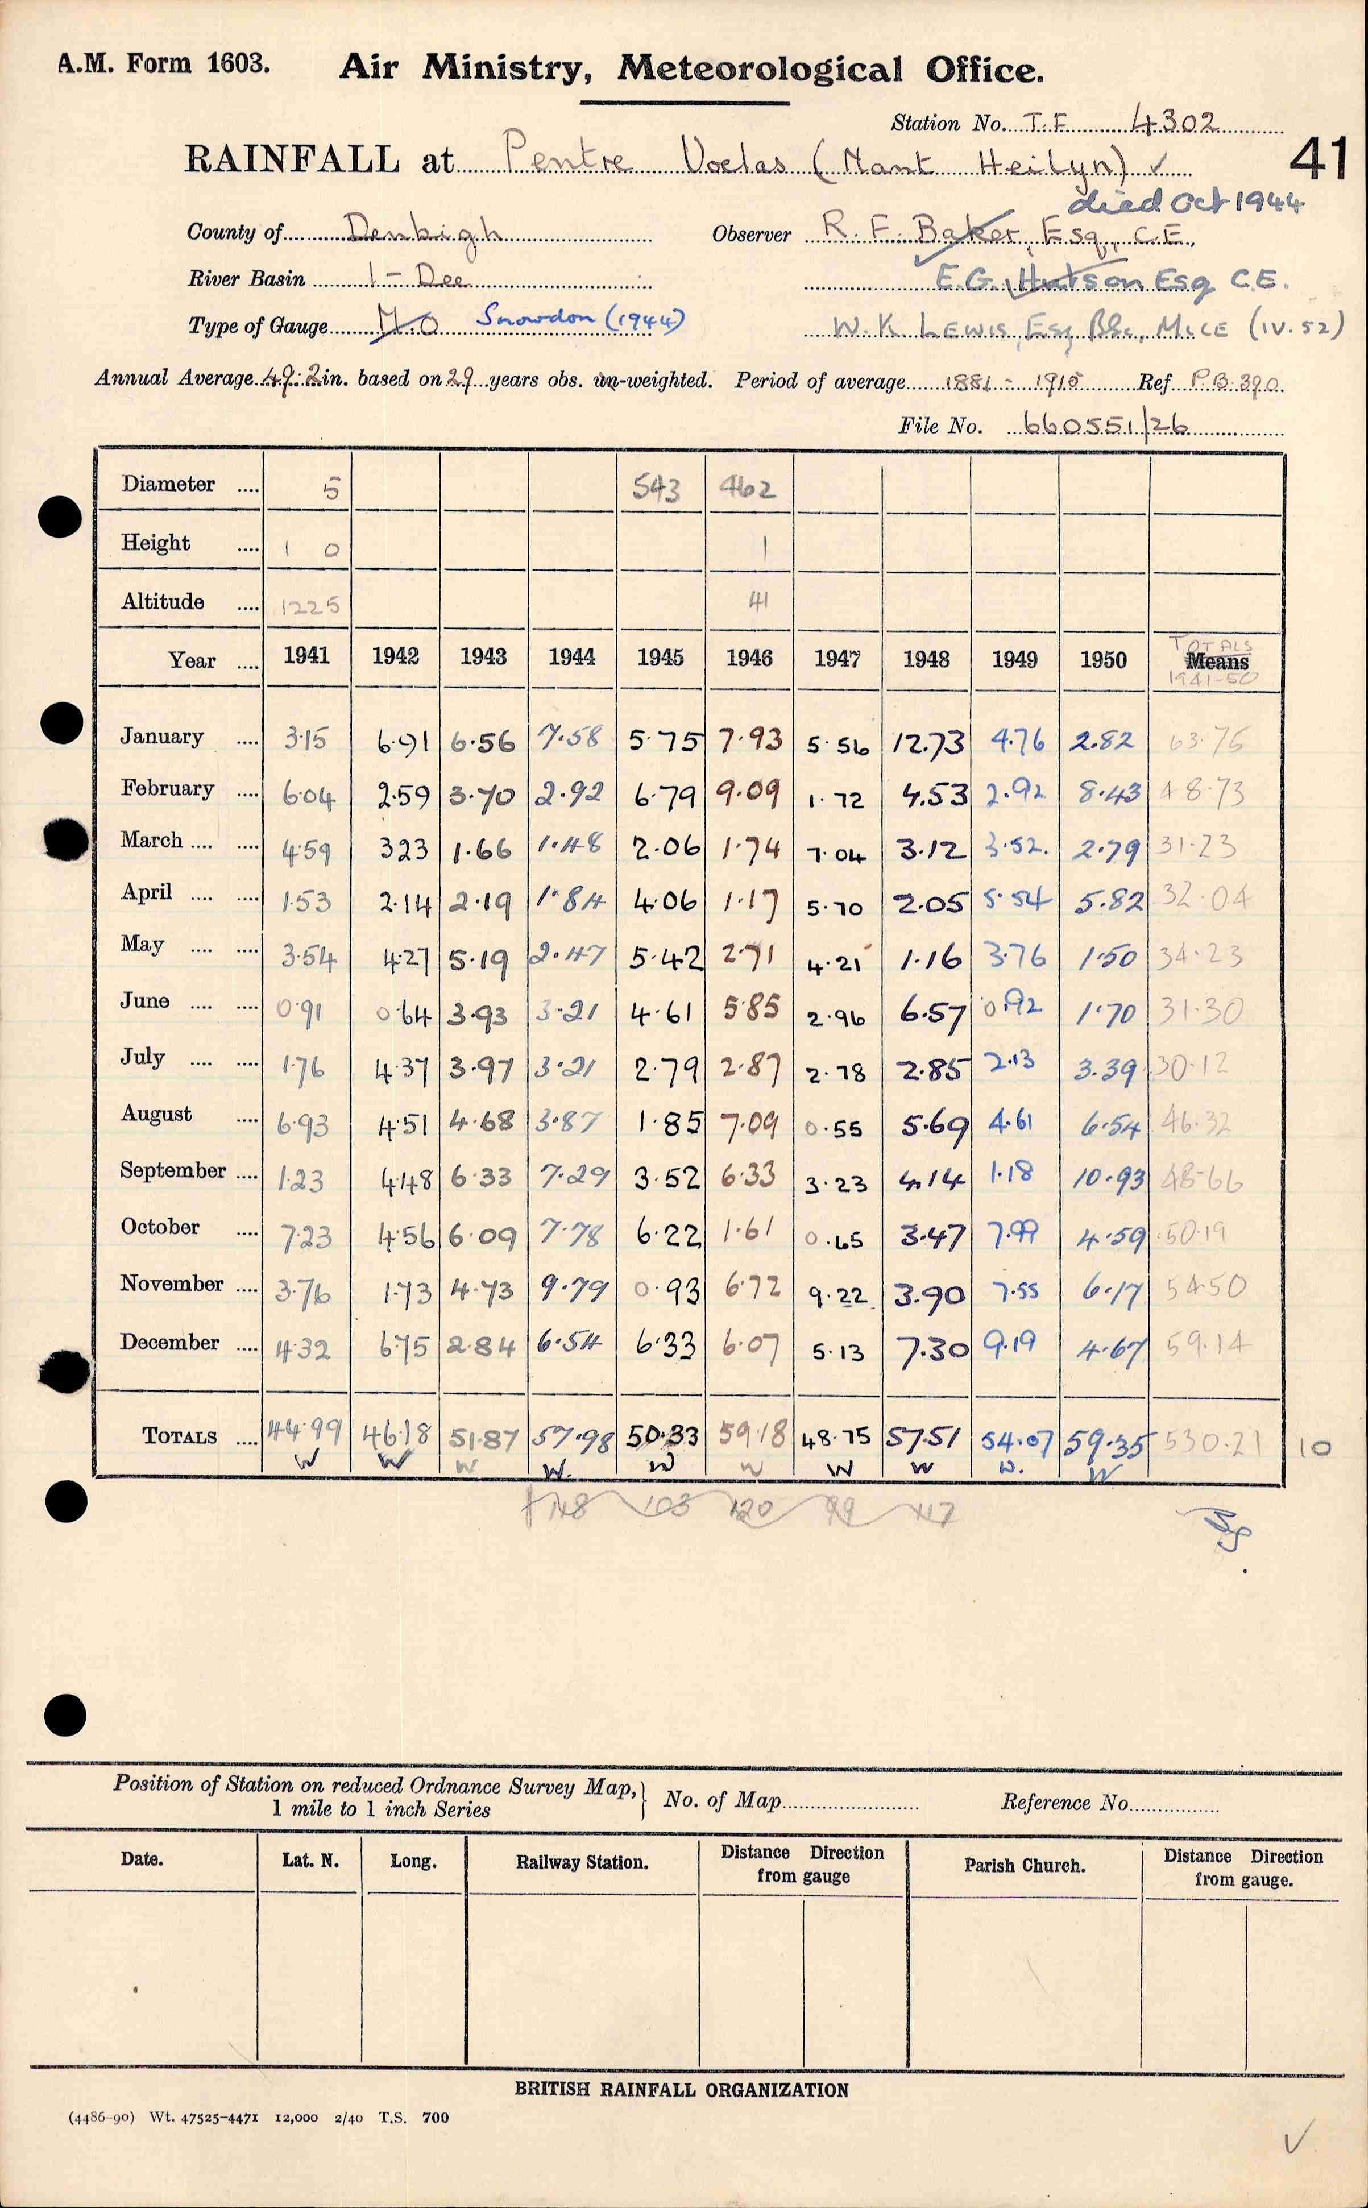 A.M. Form 1603. Air Ministry, Meteorological Office.
Station No. T.F. 4302
RAINFALL at Pentre Voelas (Nant Heilyn) ✓ 41
died Oct 1944
County of Denbigh Observer R. F. Baker, Esq., C.E.,
River Basin 1 - Dee E.G. Hutson Esq C.E.
Type of Gauge M.O Snowdon (1944) W. K. LEWIS, Esq, BSc, M.I.C.E (IV. 52)
Annual Average 49.2 in. based on 29 years obs. un-weighted. Period of average 1881 - 1915 Ref P.B. 390
File No. 660551/26
Diameter .... 5 543 462
Height .... 1 0 1
Altitude .... 1225 41
TOTALS
Year .... 1941 1942 1943 1944 1945 1946 1947 1948 1949 1950 Means
1941-50
January .... 3.15 6.91 6.56 7.58 5.75 7.93 5.56 12.73 4.76 2.82 63.75
February .... 6.04 2.59 3.70 2.92 6.79 9.09 1.72 4.53 2.92 8.43 48.73
March .... .... 4.59 3.23 1.66 1.48 2.06 1.74 7.04 3.12 3.52 2.79 31.23
April .... .... 1.53 2.14 2.19 1.84 4.06 1.17 5.70 2.05 5.54 5.82 32.04
May .... .... 3.54 4.27 5.19 2.47 5.42 2.71 4.21 1.16 3.76 1.50 34.23
June .... .... 0.91 0.64 3.93 3.21 4.61 5.85 2.96 6.57 0.92 1.70 31.30
July .... .... 1.76 4.37 3.97 3.21 2.79 2.87 2.78 2.85 2.13 3.39 30.12
August .... 6.93 4.51 4.68 3.87 1.85 7.09 0.55 5.69 4.61 6.54 46.32
September .... 1.23 4.48 6.33 7.29 3.52 6.33 3.23 4.14 1.18 10.93 48.66
October .... 7.23 4.56 6.09 7.78 6.22 1.61 0.65 3.47 7.99 4.59 50.19
November .... 3.76 1.73 4.73 9.79 0.93 6.72 9.22 3.90 7.55 6.17 54.50
December .... 4.32 6.75 2.84 6.54 6.33 6.07 5.13 7.30 9.19 4.67 59.14
TOTALS .... 44.99 46.18 51.87 57.98 50.33 59.18 48.75 57.51 54.07 59.35 530.21 10
W W W W. W W W W W. W
118 103 120 99 117
Position of Station on reduced Ordnance Survey Map,
1 mile to 1 inch Series No. of Map Reference No.
Date. Lat. N. Long. Railway Station. Distance Direction from gauge Parish Church. Distance Direction from gauge.
BRITISH RAINFALL ORGANIZATION
(4486-90) Wt. 47525-4471 12,000 2/40 T.S. 700
✓